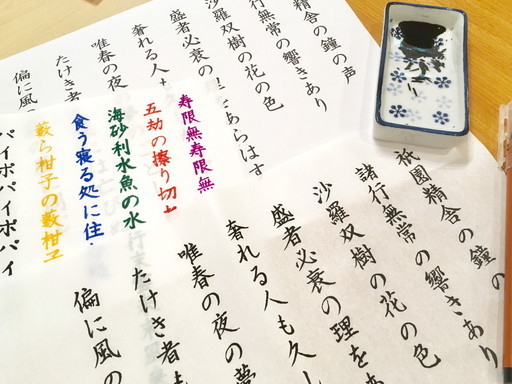 精舎の鐘の声
行無常の響きあり
沙羅双樹の花の色
盛者必衰の
であらはす
奢れる人も
唯春の夜
たけき者
偏に風
寿限無寿限無
五劫の擦り切
海砂利水魚の水
食う寝る処に住
藪ら柑子の藪柑子
パイポパイポパイ
祇園精舎の鐘の
諸行無常の響きあり
沙羅双樹の花の色
盛者必衰の理をあ
奢れる人も久し
唯春の夜の夢
たけき者も
偏に風の